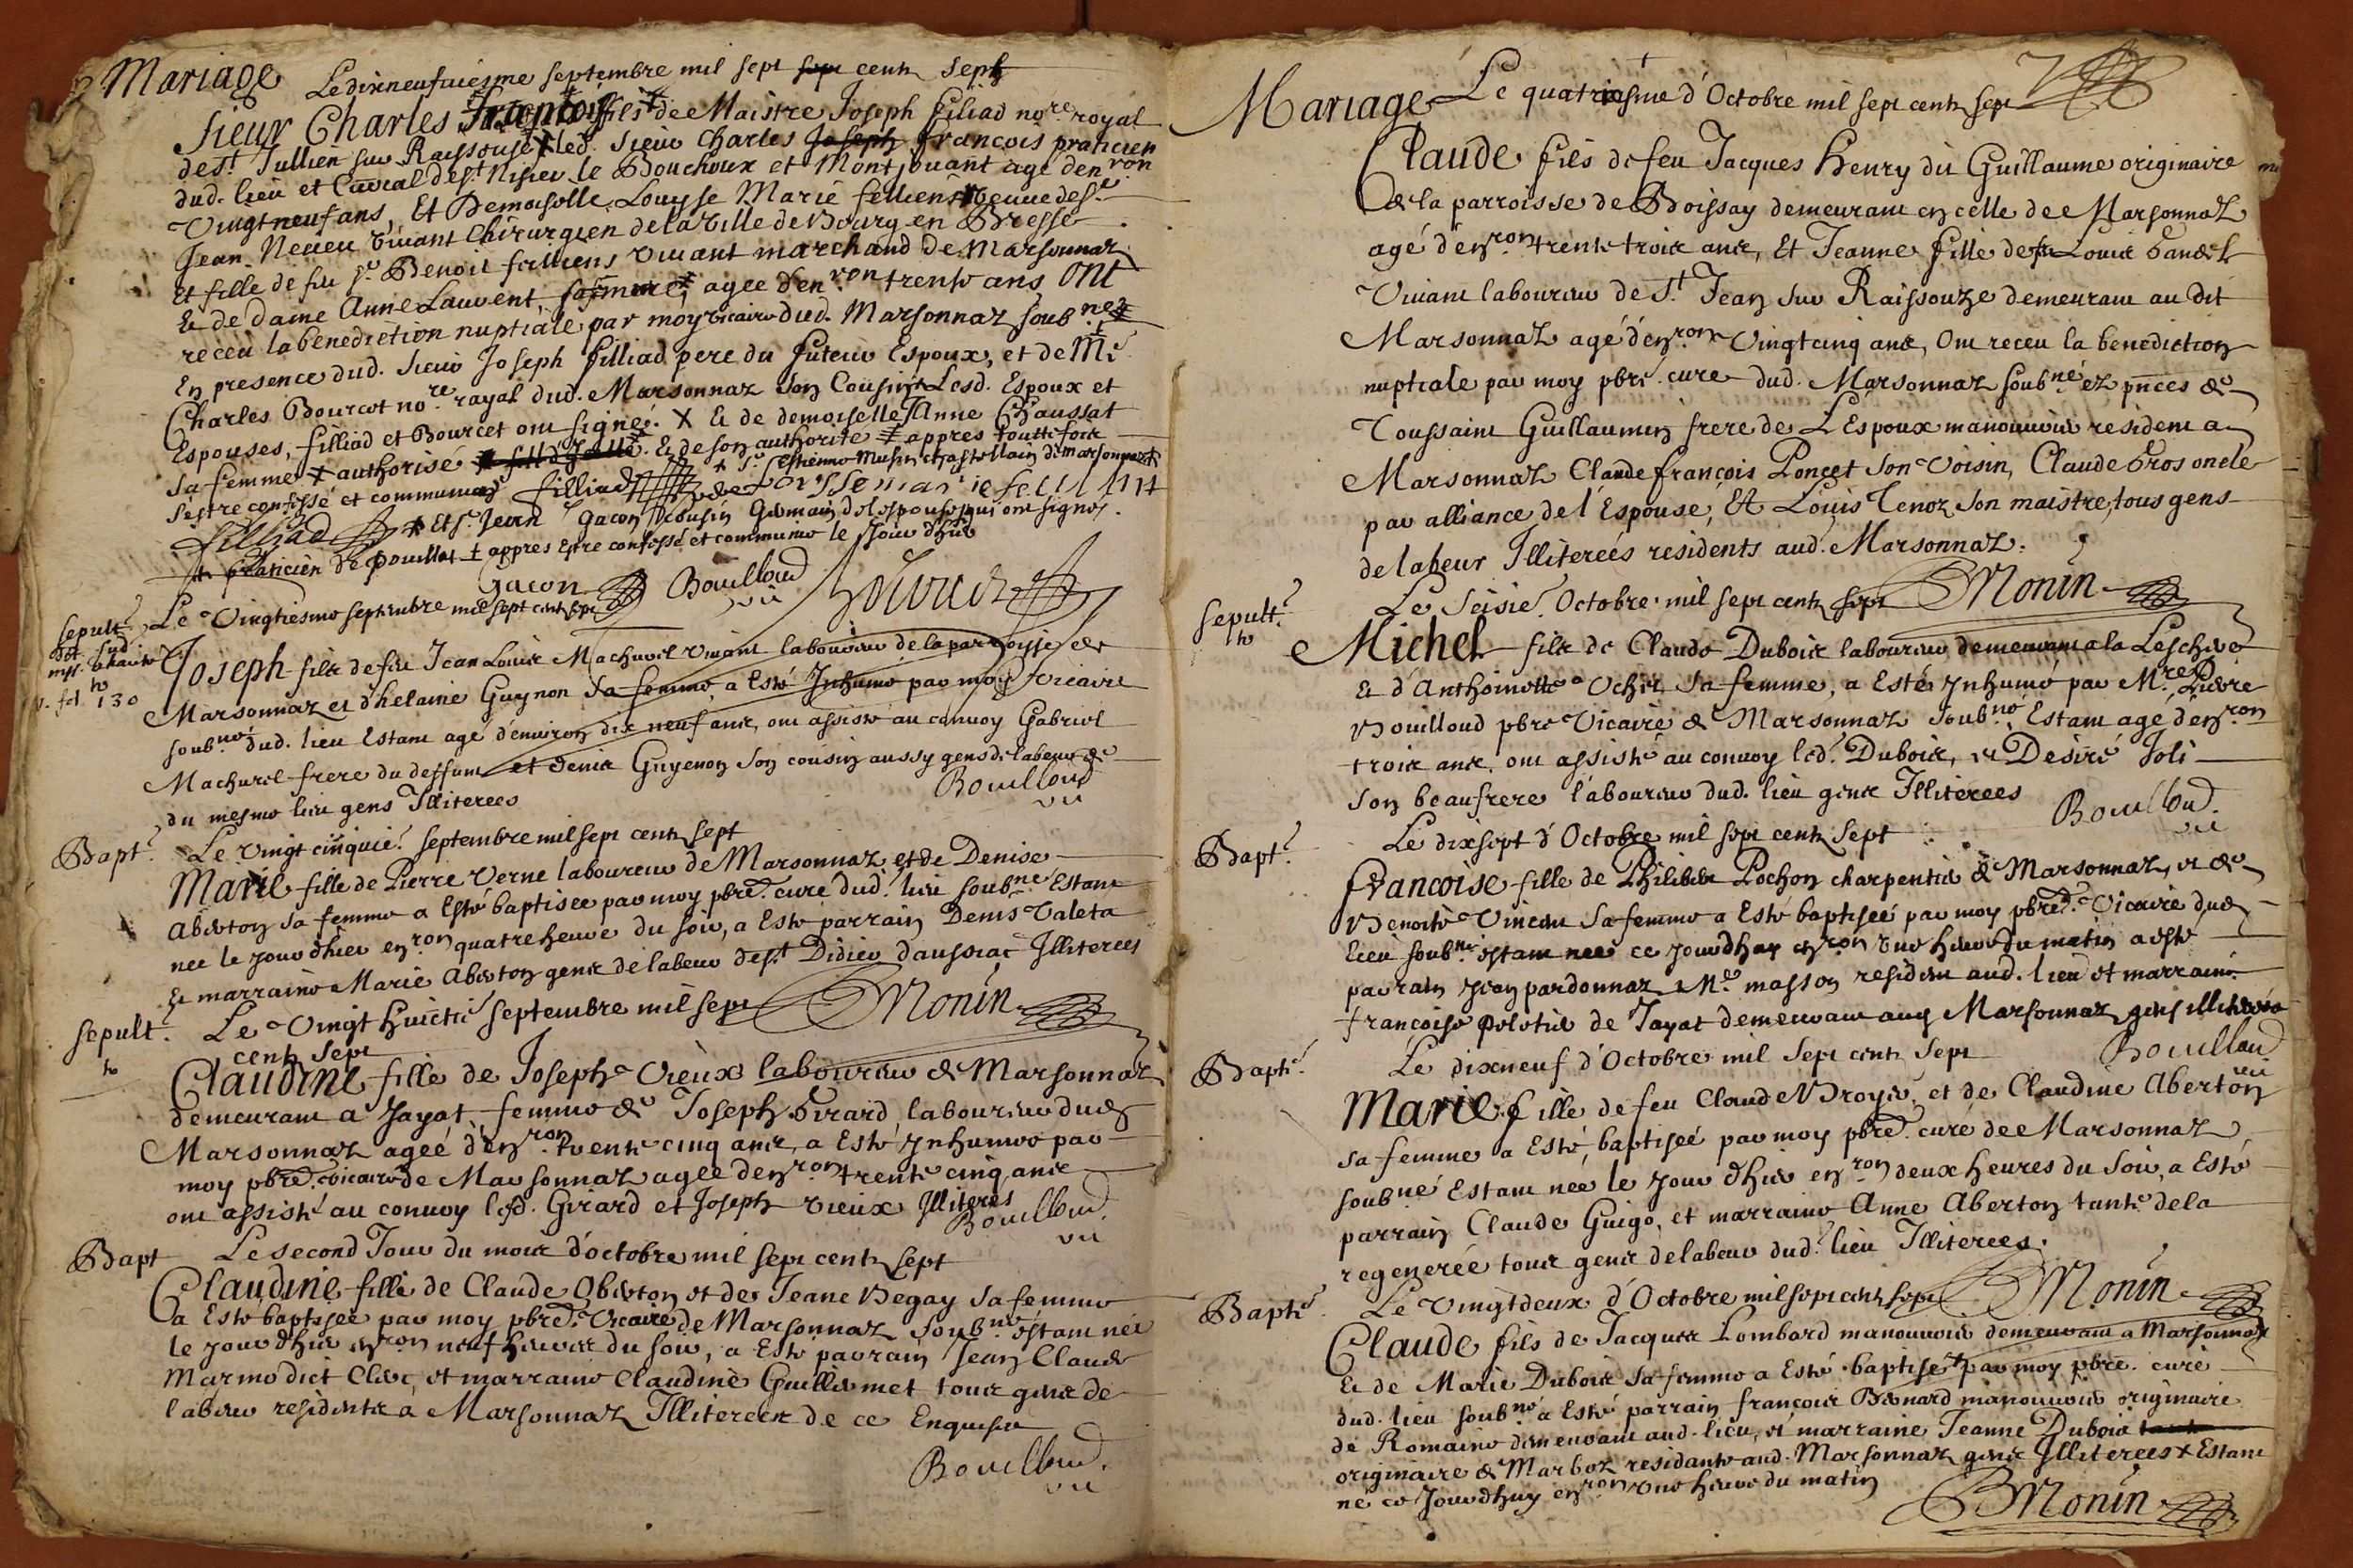 Mariage Le dixneufviesme septembre mil sept cents sept
Sieur Charles François fils de Maistre Joseph filiad nore royal
de st Jullien sur Raissouse led. sieur Charles Joseph françois praticien
dud. lieu et Curial de st Nisier le Bouchoux et Montjouant agé denron
Vingt neuf ans, Et Demoiselle Louyse Marie felliens veuve de sr
Jean Neveu vivant Chirurgien de la ville de Bourg en Bresse
Et fille de feu sr Benoit felliens vivant marchand de Marsonnaz
Et de dame Anne Laurent, sa mere, agee d'enron trente ans Ont
receu la benediction nuptiale par moy vicaire dud. Marsonnaz soubné
En presence dud. sieur Joseph filliad pere du futeur Espoux, et de Me
Charles Bourcet nore rayal dud. Marsonnaz son Cousin Lesd. Espoux et
Espouses, filliad et Bourcet ont signé. X Et de demoiselle Anne Chaussat
sa femme authorisé Et de son authorité appres touttefois
sestre confessé et communiez filliad Louysse marie felliens
sr Estienne Musin chastellain de marsonnaz
filliad Et sr Jean Gacon cousin Germain de lespouse qui ont signés.
praticien de pouillat appres Estre confessé et communié le Jour d'hier
Gacon Bouilloud vic Bourcet
sepult. Le Vingtiesme septembre mil sept cent sept
Joseph fils de feu Jean Louis Machurel vivant laboureur de la parroisse de
Marsonnaz et d'helaine Guynon sa femme a Esté Inhumé par moy vicaire
soubné dud. lieu Estant agé d'environ dix neuf ans, ont assisté au convoy Gabriel
v. fol 130
Machurel frere du deffunt et denis Guyenon son cousin aussy gens de labeur de
du mesme lieu gens Illiterees
Bouilloud
vic
Bapt. Le vingt cinquie. septembre mil sept cents sept
Marie fille de Pierre Verne laboureur de Marsonnaz et de Denise
Aberton sa femme a Esté baptisée par moy pbre. curé dud. lieu soubné Estant
née le jour d'hier enron quatre heure du soir, a Esté parrain Denis Valeta
Et marraine Marie Aberton gens de labeur de st Didier d'aussiac Illiterees
sepult. Le Vingt huictie septembre mil sept Monin
cents sept
Claudine fille de Joseph Vieux laboureur de Marsonnaz
demeurant a Jayat, femme de Joseph Girard laboureur dud.
Marsonnaz agée d'enron trente cinq ans, a Esté Inhumée par
moy pbre. vicaire de Marsonnaz agee denron trente cinq ans
ont assisté au convoy led. Girard et Joseph vieux Illiteres
Bouilloud.
vic
Bapt Le second Jour du mois d'octobre mil sept cents sept
Claudine fille de Claude Oberton et de Jeane Begay sa femme
a Esté baptisée par moy pbre. Vicaire de Marsonnaz soubné estant née
le jour d'hier enron neuf heures du soir, a Esté parrain Jean Claude
Marmo dict Clerc, et marraine Claudine Guillermet tous gens de
labeur residents a Marsonnaz Illiterees de ce Enquis
Bouilloud.
vic
Mariage Le quatriesme d'Octobre mil sept cents sept
Claude fils de feu Jacques Henry dit Guillaume originaire
de la parroisse de Boissay demeurant en celle de Marsonnaz
agé d'enron trente trois ans, Et Jeanne fille de feu Louis bandet
Vivant laboureur de St Jean sur Raissouze demeurant au dit
Marsonnaz agé d'enron Vingt cinq ans, Ont receu la benediction
nuptiale par moy pbre. curé dud. Marsonnaz soubné ez pnces de
Toussaint Guillaumin frere de L'Espoux manouvrier resident a
Marsonnaz Claude françois Poncet son voisin, Claude Gros oncle
par alliance de l'Espouse, Et Louis Tenoz son maistre, tous gens
de labeur Illiterees residents aud. Marsonnaz.
Monin
sepult. Le seisie. Octobre mil sept cents sept
Michel fils de Claude Dubois laboureur demeurant a la Leschere
Et d'Anthoinette Ocher sa femme, a Esté Inhumé par Mre Pierre
Bouilloud pbre Vicaire de Marsonnaz soubné Estant agé d'enron
trois ans, ont assisté au convoy led. Dubois, et Desiré Joli
son beaufrere l'aboureur dud. lieu gens Illiterees
Bouilloud.
vic
Bapt. Le dixsept d'Octobre mil sept cents sept
francoise fille de Philibert Pochon charpentier de Marsonnaz, et de
Benoite Vincent sa femme a Esté baptiseé par moy pbre. Vicaire dud.
lieu soubné estant née ce jourdhuy enron une heure du matin a esté
parrain jean pardonnaz Me masson resident aud. lieu et marraine
francoise peletier de Jayat demeurant aud Marsonnaz gens illiterees
Bouilloud
vic
Bapt. Le dixneuf d'Octobre mil sept cents sept
Marie fille de feu Claude Broyer, et de Claudine Aberton
sa femme a Esté, baptiseé par moy pbre. curé de Marsonnaz
soubné Estant née le jour d'hier enron deux heures du soir, a Esté
parrain Claude Guigo, et marraine Anne Aberton tante de la
regenerée tous gens de labeur dud. lieu Illiterees.
Monin
Bapt. Le Vingtdeux d'Octobre mil sept cents sept
Claude fils de Jacques Lombard manouvrier demeurant a Marsonnaz
Et de Marie Dubois sa femme a Esté baptisé par moy pbre. curé
dud. lieu soubné a Esté parrain francois Bernard manouvrier originaire
de Romaine demeurant aud. lieu, et marraine Jeanne Dubois
originaire de Marboz residante aud. Marsonnaz gens Illiterees X Estant
né ce Jourd'huy enron une heure du matin
Monin